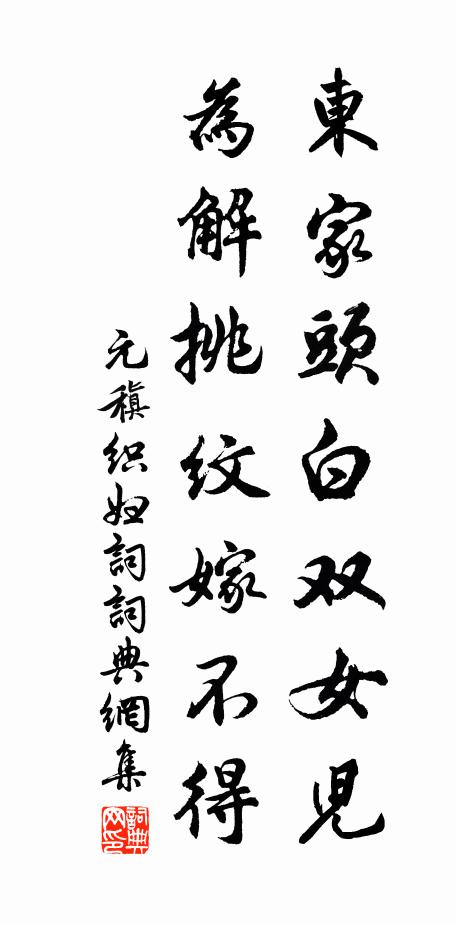 東家頭白双女児
為解挑紋嫁不得
元稹织妇詞詞典網集
詞典網印